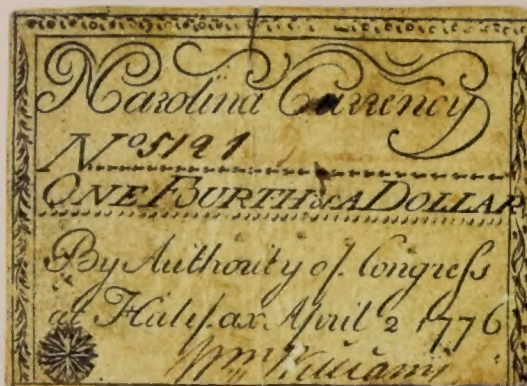 N Carolina Currency
No 5191
ONE FOURTH of A DOLLAR
By Authority of Congreſs
at Halifax April 2 1776
Wm Williams